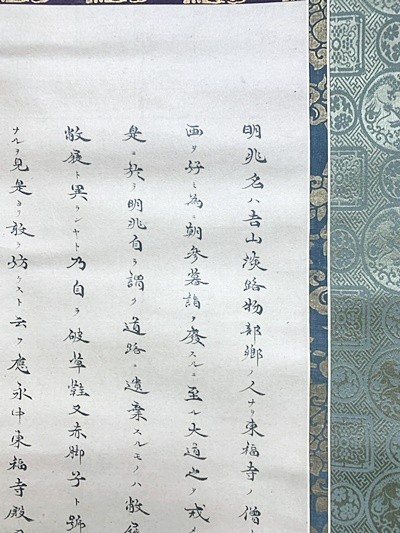 明兆名ハ吉山淡路物部郷ノ人ナリ東福寺ノ僧
画ヲ好ミ為ニ朝参暮請ヲ廃スルニ至ル大道之ヲ戒メ
是ニ於テ明兆自ラ謂ク道路ニ遺棄スルモノハ敝屣
敝屣ト異ランヤト乃自ラ破草鞋又赤脚子ト號
ナルヲ見是ヨリ敢ラ妨ケスト云フ應永中東福寺殿